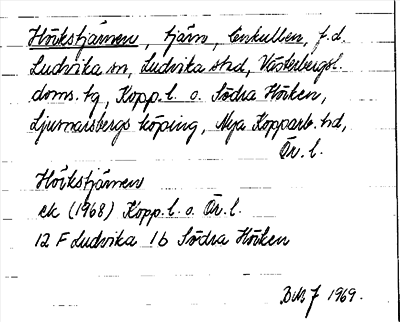 Hörkstjärnen, tjärn, Enkullen, f.d.
Ludvika sn, Ludvika std, Västerbergsl.
doms. tg, Kopp. l. o. Södra Hörken,
Ljusnarsbergs köping, Nya Kopparb. hd,
Ör. l.
Hörkstjärnen
ek (1968) Kopp. l. o. Ör. l.
12 F Ludvika 1b Södra Hörken
1969.